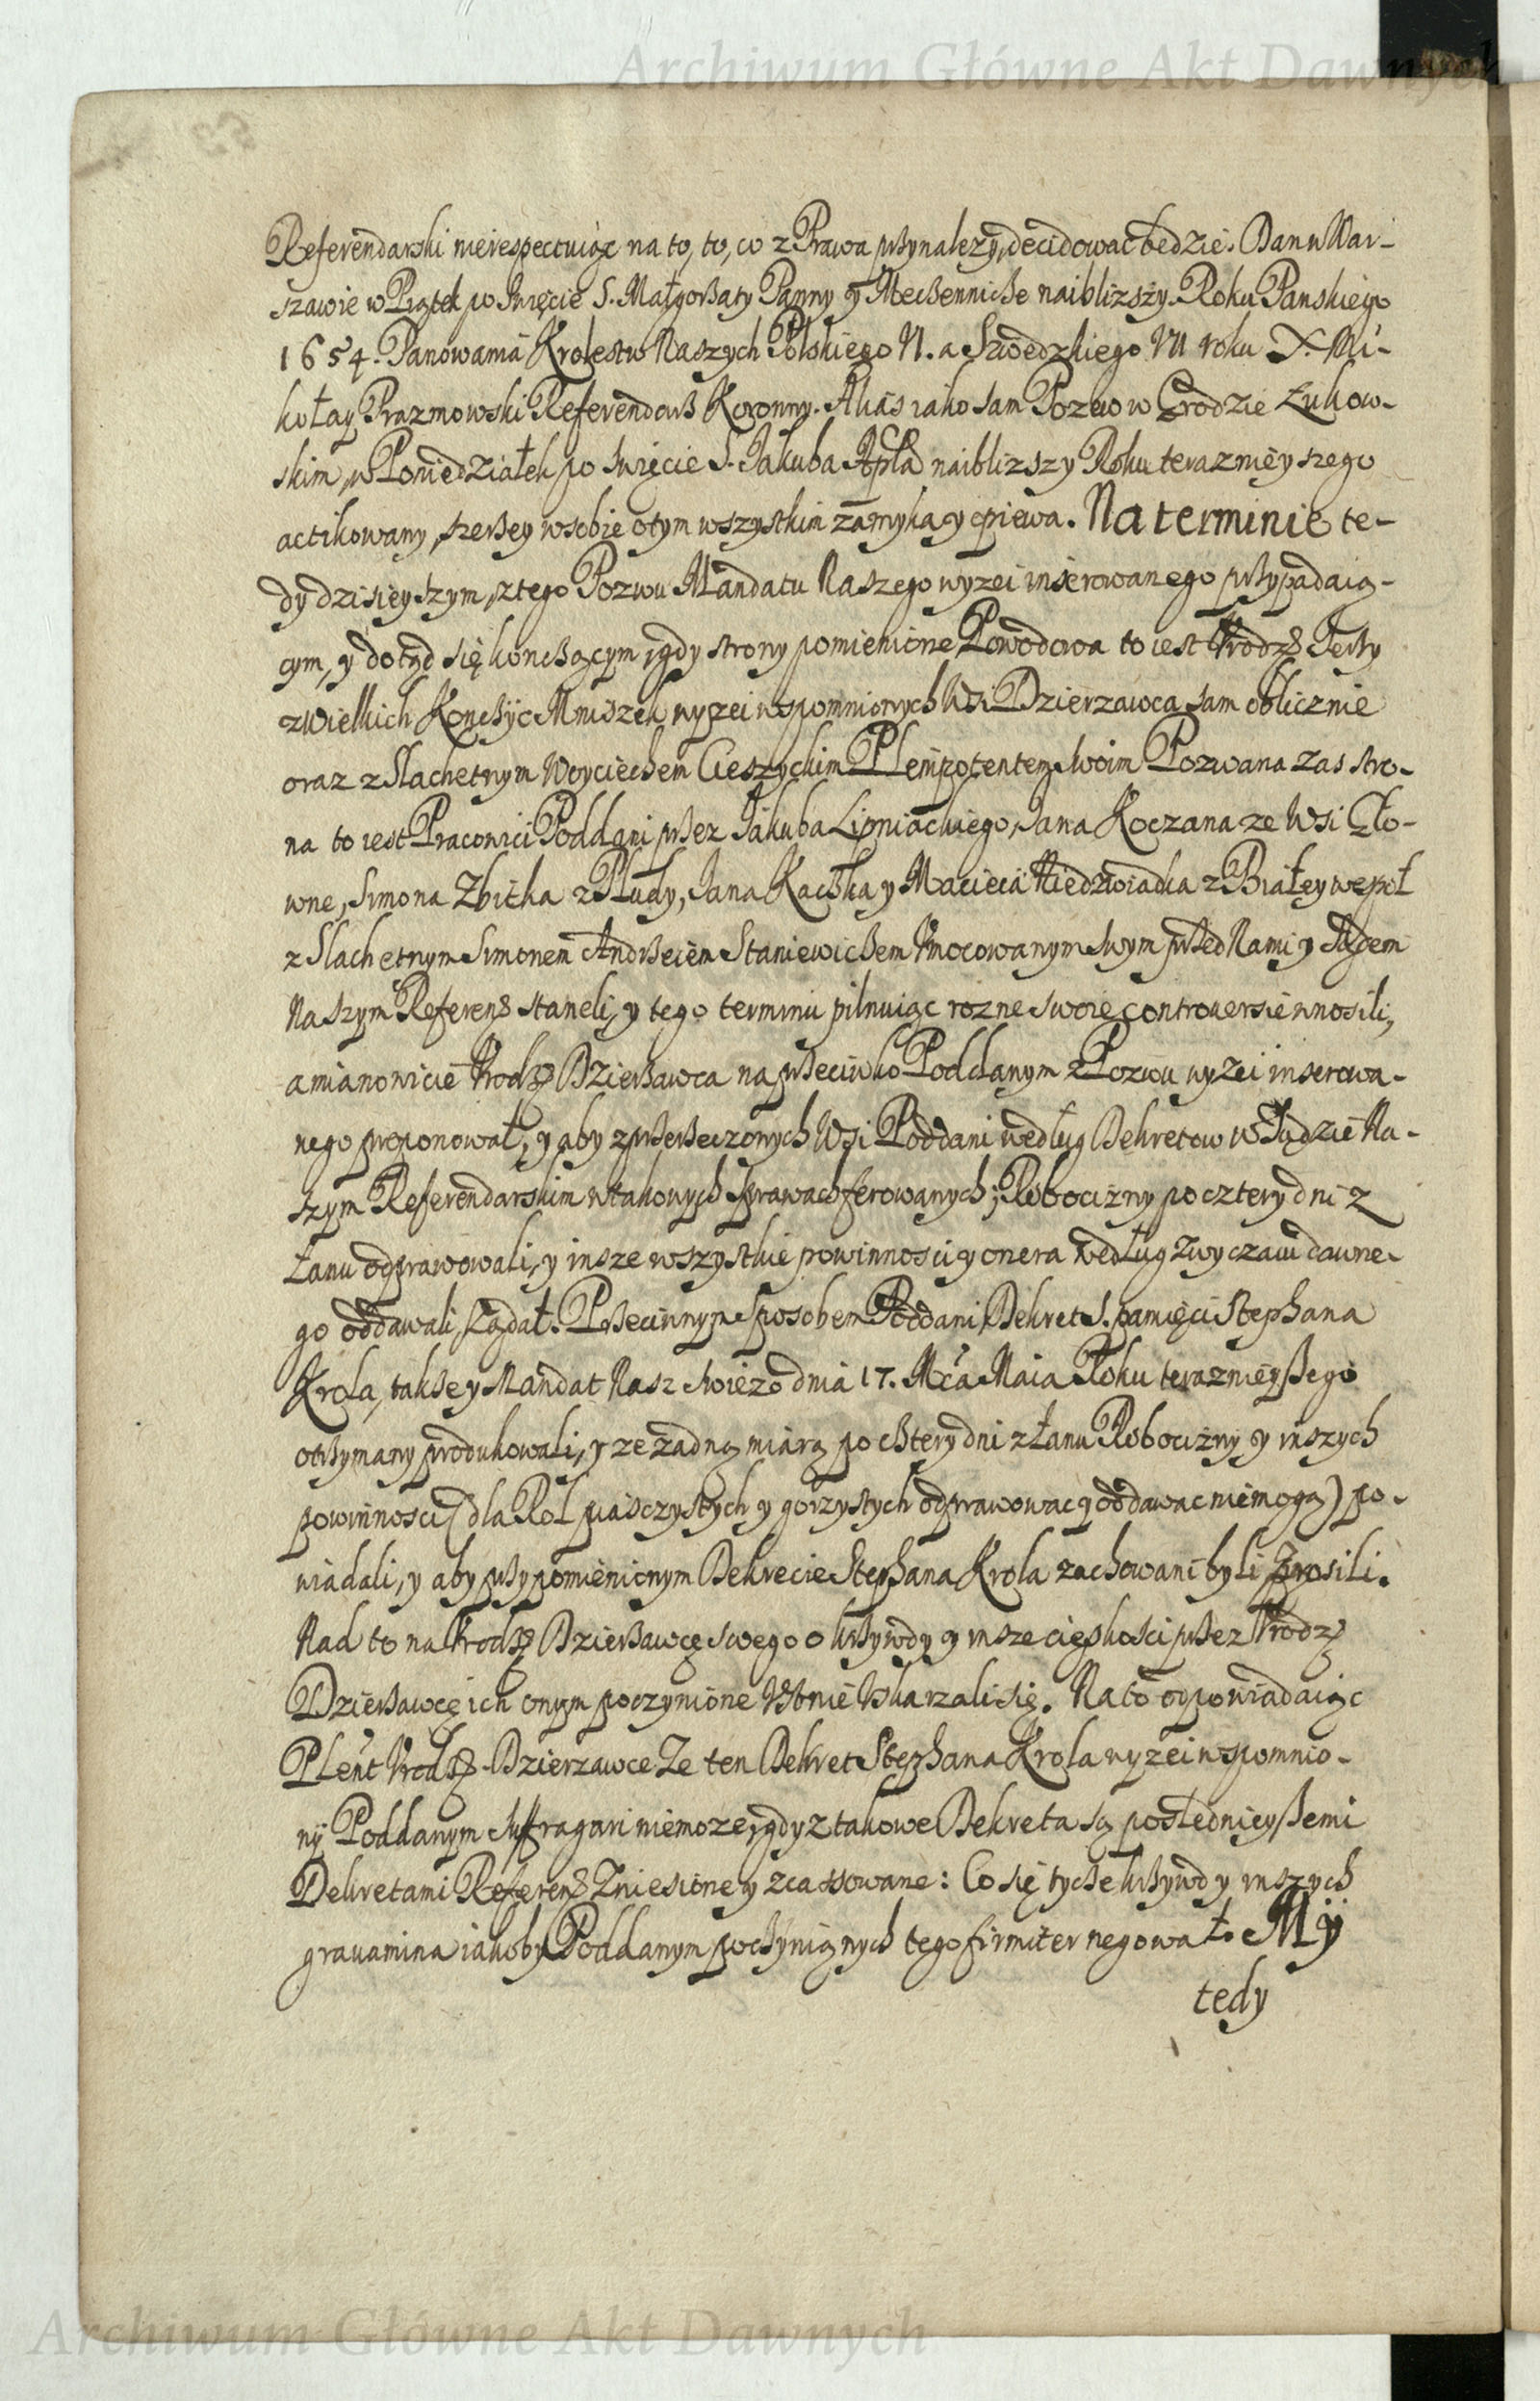 Archiwum Główne Akt Dawnych
Referendarski nierespectuiąc na to, to, co z Prawa przynalezy, decidowac będzie. Dan w War-
szawie w Piątek po Swięcie S. Małgorzaty Panny y Meczennicze naiblizszy. Roku Panskiego
1654. Panowania Krolestw Naszych Polskiego VI. a Szwedzkiego VII roku X. Mi-
kołay Prazmowski Referendarz Koronny. Alias iako sam Pozew w Grodzie Łukow-
skim, w Poniedziałek po Swięcie S. Jakuba Apła naiblizszy Roku teraznieyszego
actikowany, szerzey w sobie o tym wszystkim zamyka y opiewa. Na terminie te-
dy dzisieyszym, z tego Pozwu Mandatu Naszego wyzei inserowanego przypadaią-
cym, y dotąd się konczącym, gdy strony pomienione Powodowa to iest Urodz. Jerzy
z Wielkich Konczyc Mniszek wyzei wspomnionych Wsi Dzierzawca sam oblicznie
oraz z Slachetnym Woyciechem Cieszyckim Plenipotentem swoim Pozwana zas stro-
na to iest Pracowici Poddani przez Jakuba Lipniackiego, Jana Koczana ze Wsi Gło-
wne, Simona Zbitka z Płudy, Jana Kaczka y Macieia Niedzwiadka z Białey wespoł
z Slachetnym Simonem Andrzeiem Staniewiczem Umocowanym swym przed Nami y Sądem
Naszym Referen. staneli, y tego terminu pilnuiąc rozne swoie controversie wnosili,
a mianowicie Urodz. Dzierzawca na przeciwko Poddanym z Pozwu wyzei inserowa-
nego proponował, y aby z przerzeczonych Wsi Poddani według Dekretow w Sądzie Na-
szym Referendarskim w takowych sprawach ferowanych, Robocizny po cztery dni z
Łanu odprawowali, y insze wszystkie powinnosci y onera według zwyczaiu dawne-
go oddawali, ządał. Przeciwnym sposobem Poddani Dekret S. pamięci Stephana
Krola, takze y Mandat Nasz swiezo dnia 17. Mca Maia Roku teraznieyszego
otrzymany produkowali, y ze zadną miarą po cztery dni z Łanu Robocizny y inszych
powinnosci (dla Rol piasczystych y gorzystych odprawowac y oddawac niemogą) po-
wiadali, y aby przy pomienionym Dekrecie Stephana Krola zachowani byli prosili.
Nad to na Urodz. Dzierzawcę swego o krzywdy y insze cięzkosci przez Urodz.
Dzierzawcę ich onym poczynione Ustnie Uskarzali się. Na to odpowiadaiąc
Plent Urodz. Dzierzawce Ze ten Dekret Stephana Krola wyzei wspomnio-
ny Poddanym suffragari niemoze, gdyz takowe Dekreta są poslednieyszemi
Dekretami Referen. Zniesione y zcassowane: Co się tycze krzywd y inszych
gravamina iakoby Poddanym poczynionych tego firmiter negował. My
tedy
Archiwum Główne Akt Dawnych